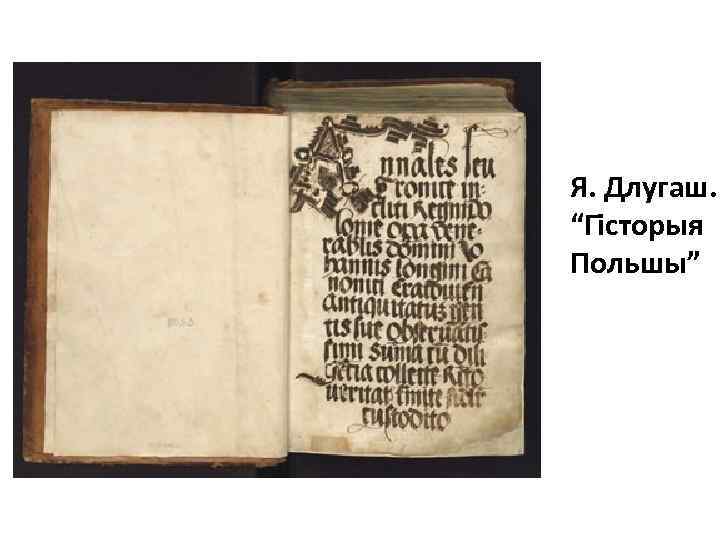 Annales seu
Cronice in-
cliti Regni Po
lonie opa vene-
rabilis domini Jo
hannis Longini Ca
nonici Cracovien
antiquitatum gen
tis sue observatis
simi Suma cu dili
gētia collecte
veritat
custodito
Я. Длугаш.
“Гісторыя
Польшы”